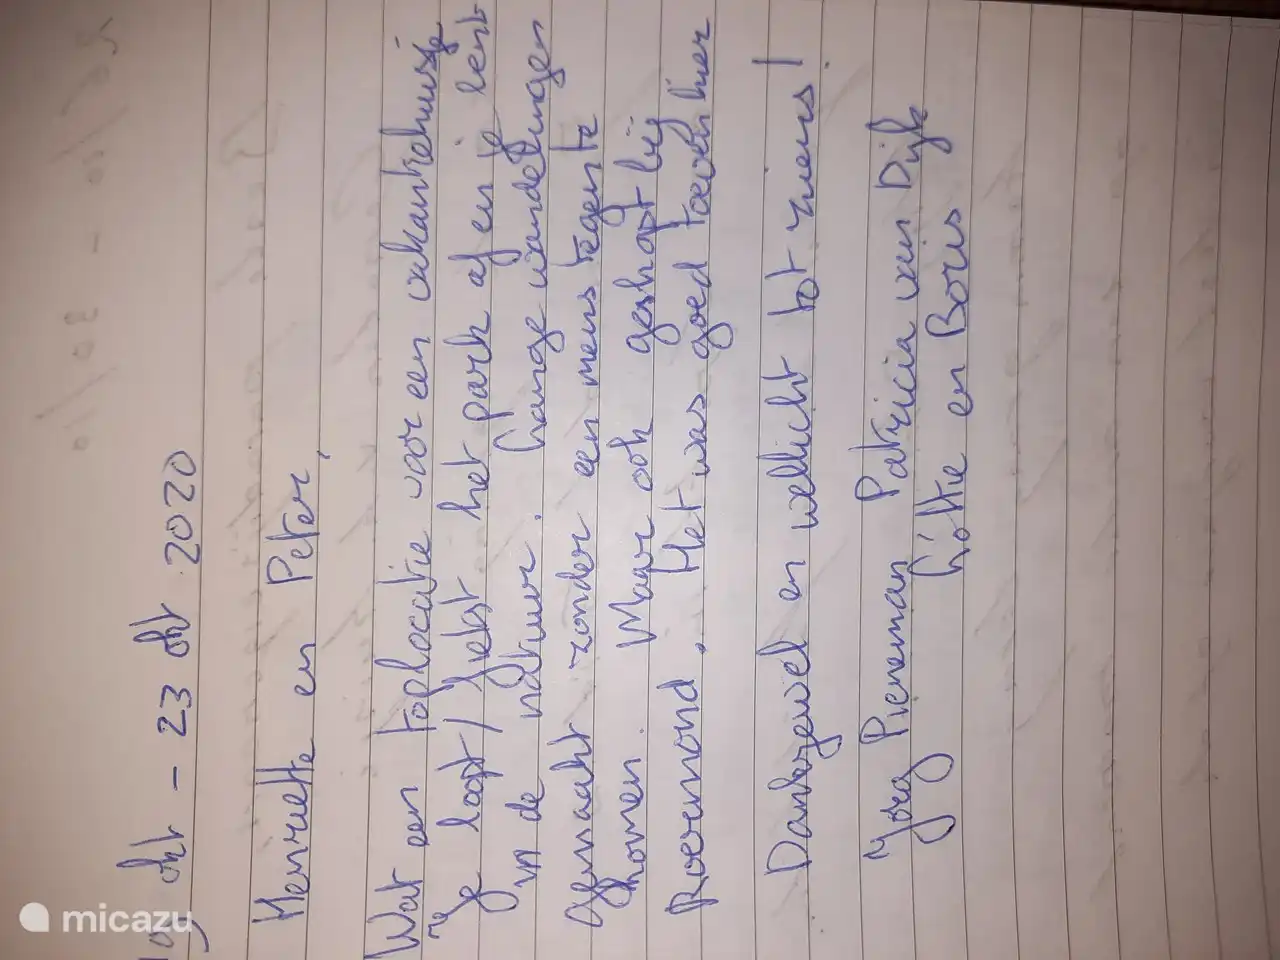 19 okt - 23 okt 2020
Henriette en Peter,
Wat een toplocatie voor een vakantiehuisje
Je loopt / fietst het park af en je bent
in de natuur. Lange wandelingen
gemaakt zonder een mens tegen te
komen. Maar ook geshopt bij
Roermond. Het was goed toeven hier
Dankjewel en wellicht tot ziens!
Jora Pieneman Patricia van Dijk
Lotte en Boris
micazu